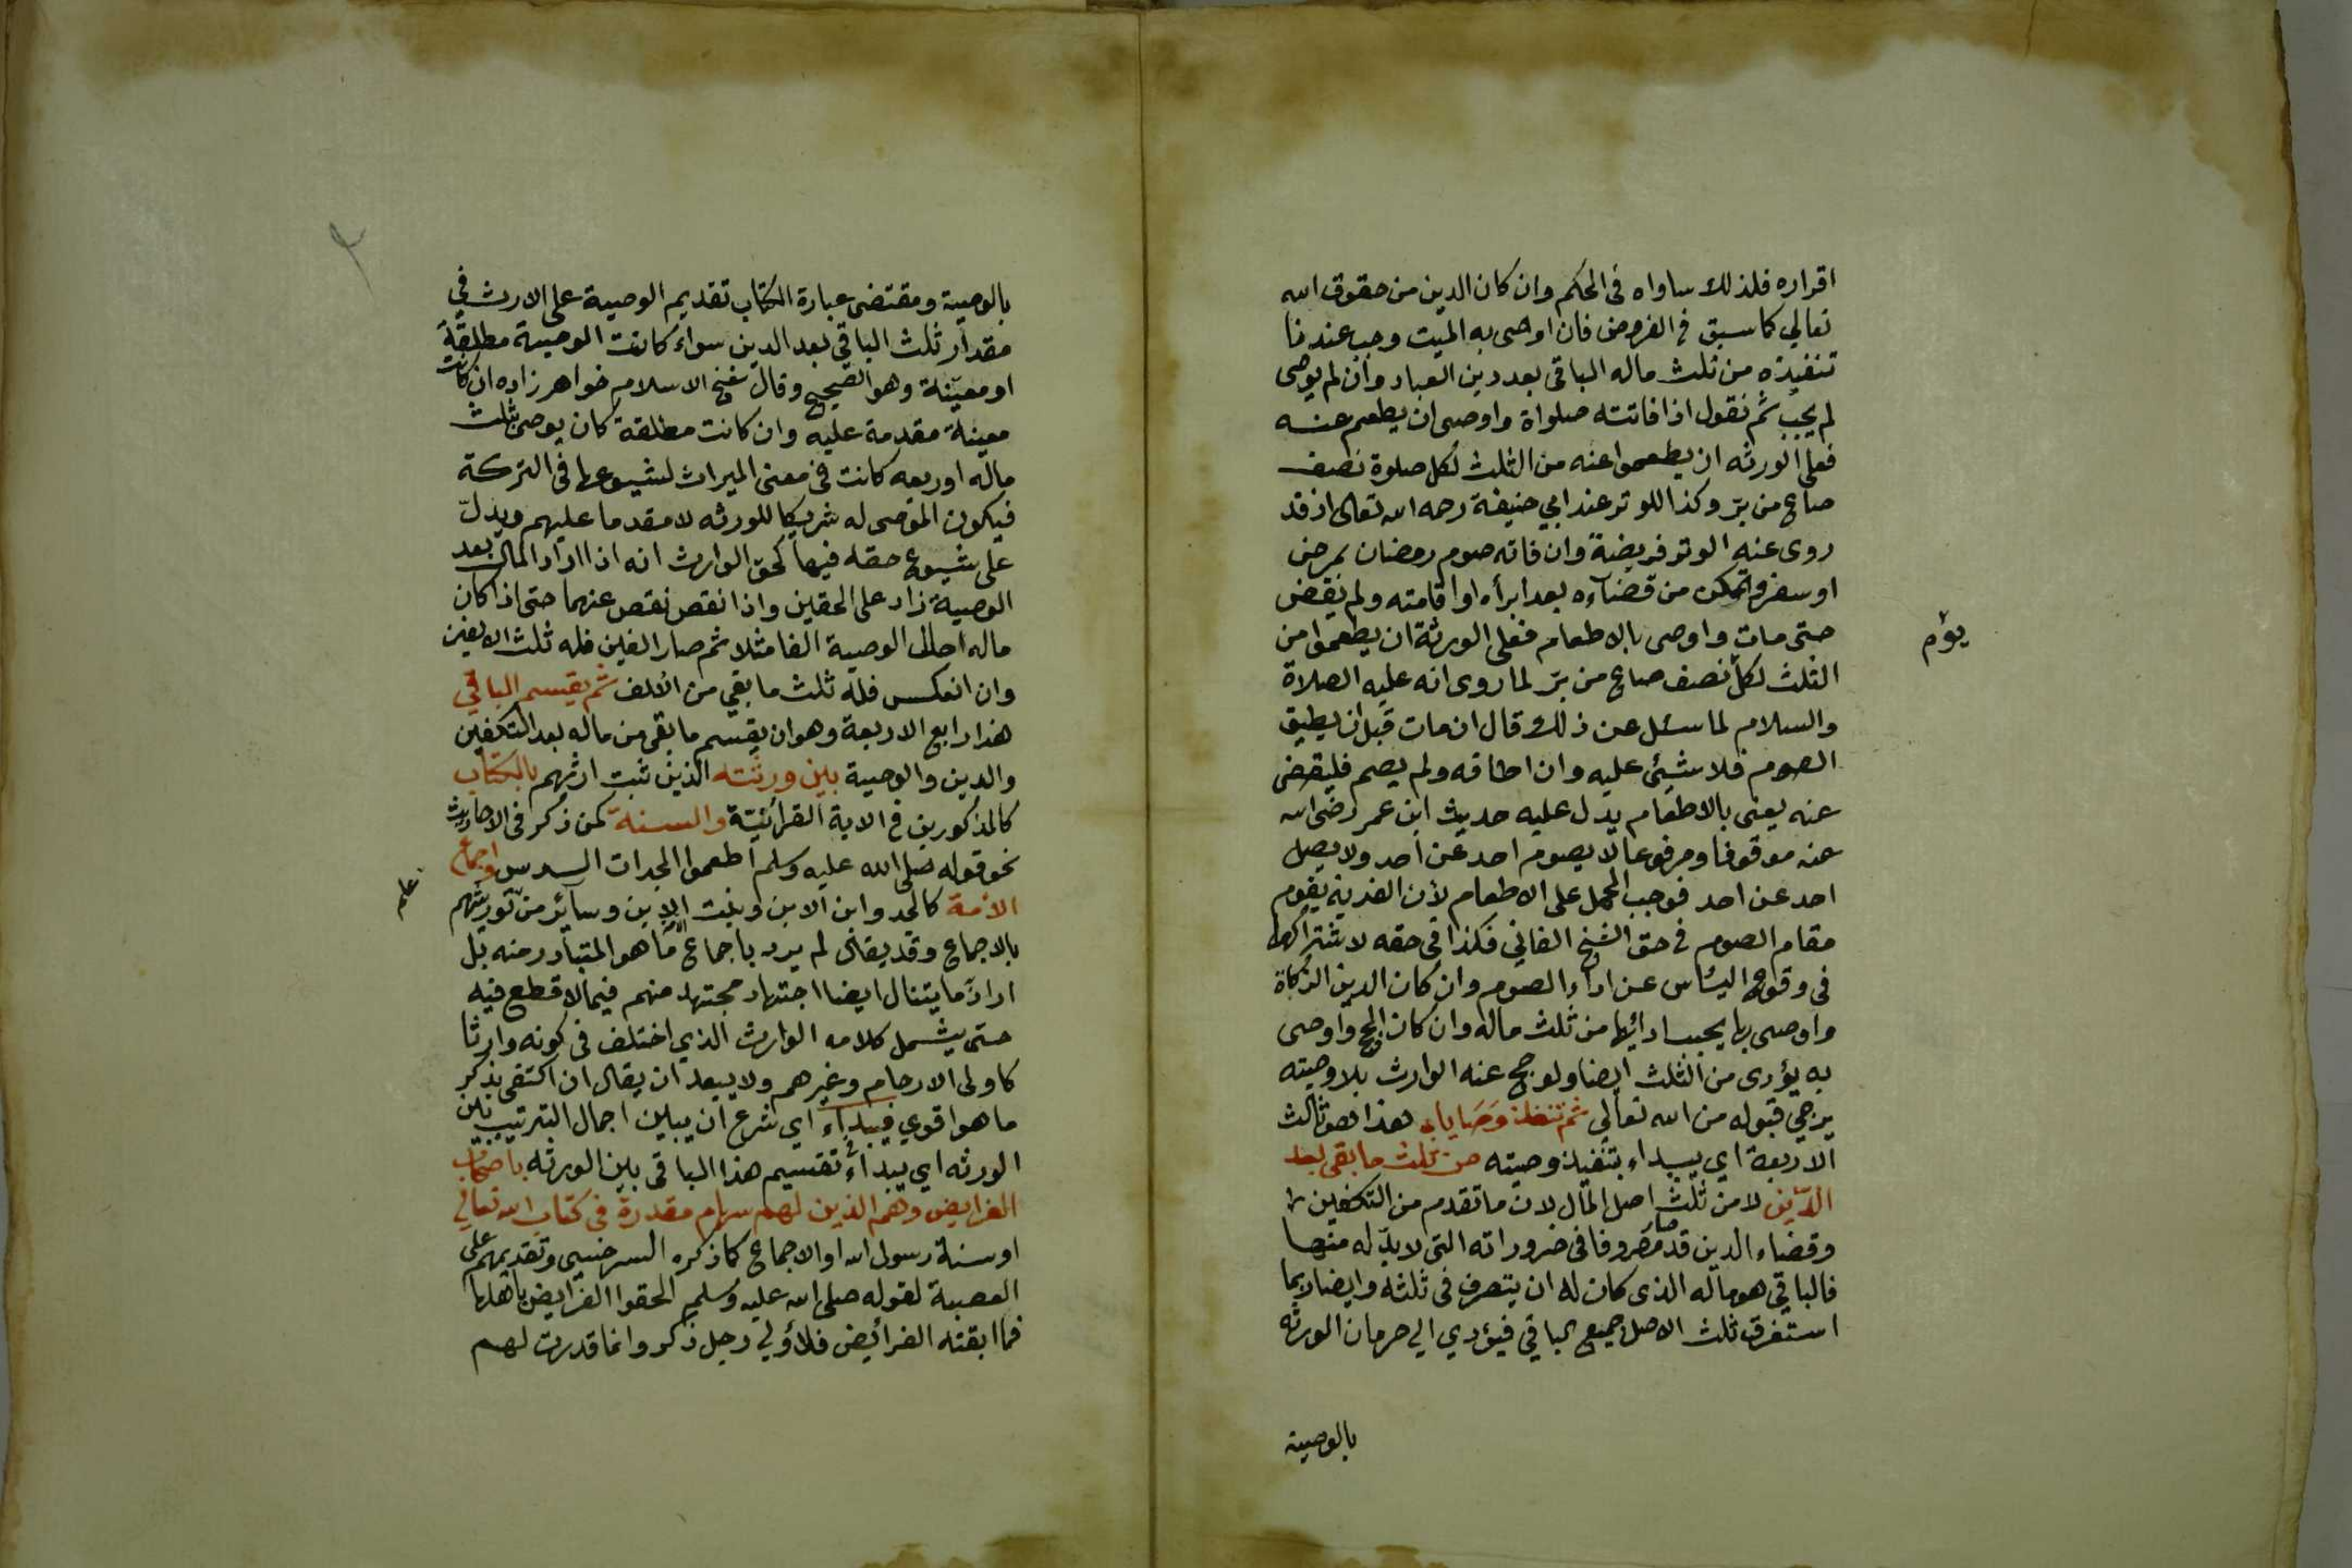 اقراره فلذلك ساواه في الحكم وان كان الدين من حقوق الله
تعالي كما سبق في الفروض فان اوصى به الميت وجب عندنا
تنفيذه من ثلث ماله الباقي بعد دين العباد وان لم يوصى
لم يجب ثم نقول اذا فاتته صلواة واوصى ان يطعم عنه
فعلى الورثه ان يطعموا عنه من الثلث لكل صلوة نصف
صاع من برّ وكذا للوتر عند ابي حنيفة رحمه الله تعالى اذ قد
روى عنه الوتر فريضة وان فاته صوم رمضان بمرض
او سفر وتمكن من قضآءه بعد ابرأه او اقامته ولم يقض
حتى مات واوصى بالاطعام فعلى الورثة ان يطعموا من
يوم
الثلث لكل نصف صاع من برّ لما روى انه عليه الصلاة
والسلام لما سئل عن ذلك قال ان مات قبل ان يطيق
الصوم فلا شيئ عليه وان اطاقه ولم يصم فليقضى
عنه يعنى بالاطعام يدل عليه حديث ابن عمر رضى الله
عنه موقوفا ومرفوعا لا يصوم احد عن احد ولا يصل
احد عن احد فوجب الحمل على الاطعام لأن الفدية يقوم
مقام الصوم في حق الشيخ الفاني فكذا في حقه لاشتراكهما
في وقوع اليئاس عن اداء الصوم وان كان الدين الزكاة
واوصى بها يجب ادائها من ثلث ماله وان كان الحج واوصى
به يؤدى من الثلث ايضا ولو حج عنه الوارث بلا وصيته
يرجي قبوله من الله تعالي ثم تنفذ وصاياه هذا هو ثالث
الاربعة اي يبداء بتنفيذ وصيته من ثلث ما بقى بعد
الدّين لا من ثلث اصل المال لان ما تقدم من التكفين
وقضاء الدين قد صار مصروفا في ضروراته التى لا بدّ له منها
فالباقي هو ماله الذى كان له ان يتصرف في ثلثه وايضا ربما
استغرق ثلث الاصل جميع الباقي فيؤدي الي حرمان الورثه
بالوصية
٢
بالوصية ومقتضى عبارة الكتاب تقديم الوصية على الارث في
مقدار ثلث الباقي بعد الدين سواء كانت الوصية مطلقة
او معيّنة وهو الصحيح وقال شيخ الاسلام خواهر زاده ان كانت
معينة مقدمة عليه وان كانت مطلقة كان يوصى بثلث
ماله او ربعه كانت في معنى الميراث لشيوعها في التركة
فيكون الموصى له شريكا للورثه لا مقدما عليهم ويدلّ
على شيوع حقه فيها كحق الوارث انه اذا ازاد المال بعد
الوصية زاد على الحقين واذا نقص نقص عنهما حتى اذا كان
ماله حال الوصية الفا مثلا ثم صار الفين فله ثلث الالفين
وان انعكس فله ثلث ما بقي من الالف ثم يقسم الباقي
هذا رابع الاربعة وهو ان يقسم ما بقى من ماله بعد التكفين
والدين والوصية بين ورثته الذين ثبت ارثهم بالكتاب
كالمذكورين في الاية القرائنيّة والسنة كمن ذكر في الاحاديث
نحو قوله صلى الله عليه وسلم اطعموا الجدات السدس واجماع
الامة كالجد وابن الابن وبنت الابن وسائر من توريثهم
علم
بالاجماع وقد يقال لم يرد باجماع الامة ما هو المتبادر منه بل
اراد ما يتنال ايضا اجتهاد مجتهد منهم فيما لا قطع فيه
حتى يشمل كلامه الوارث الذي اختلف في كونه وارثا
كاولى الارحام وغيرهم ولا يبعد ان يقال ان اكتفى بذكر
ما هو اقوي فيبداء اي شرع ان يبين اجمال الترتيب بين
الورثه اي يبداء تقسيم هذا الباقى بين الورثه باصحاب
الفرايض وهم الذين لهم سهام مقدرة في كتاب الله تعالي
او سنة رسول الله او الاجماع كما ذكره السرخسى وتقديمهم على
العصبة لقوله صلى الله عليه وسلم الحقوا الفرايض باهلها
فما ابقته الفرائض فلأولي رجل ذكر وانما قدرت لهم